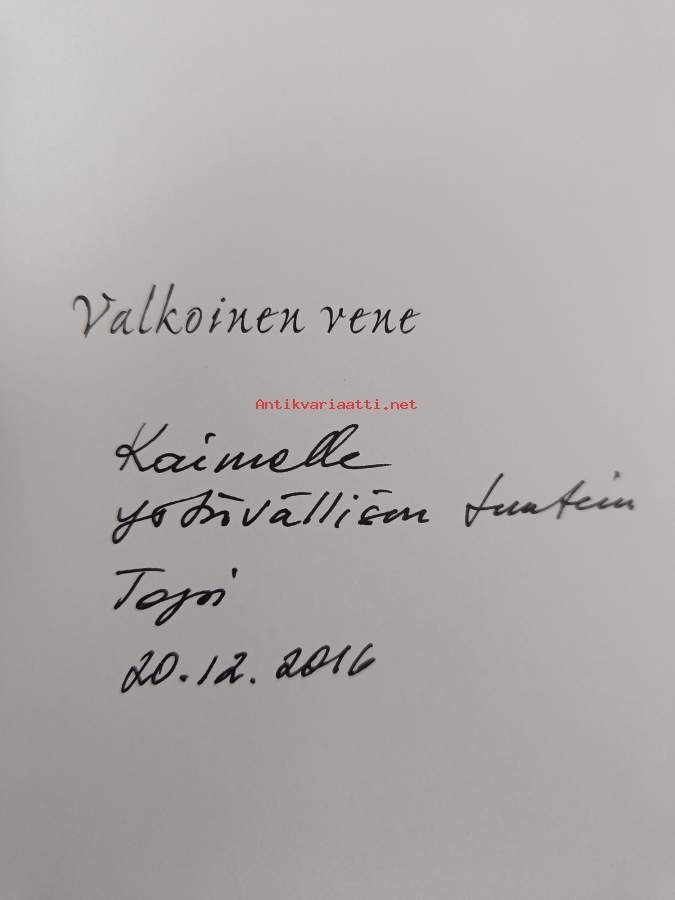 Valkoinen vene
Antikvariaatti.net
Kaimelle
ystävällisin tuntein
Topi
20.12.2016